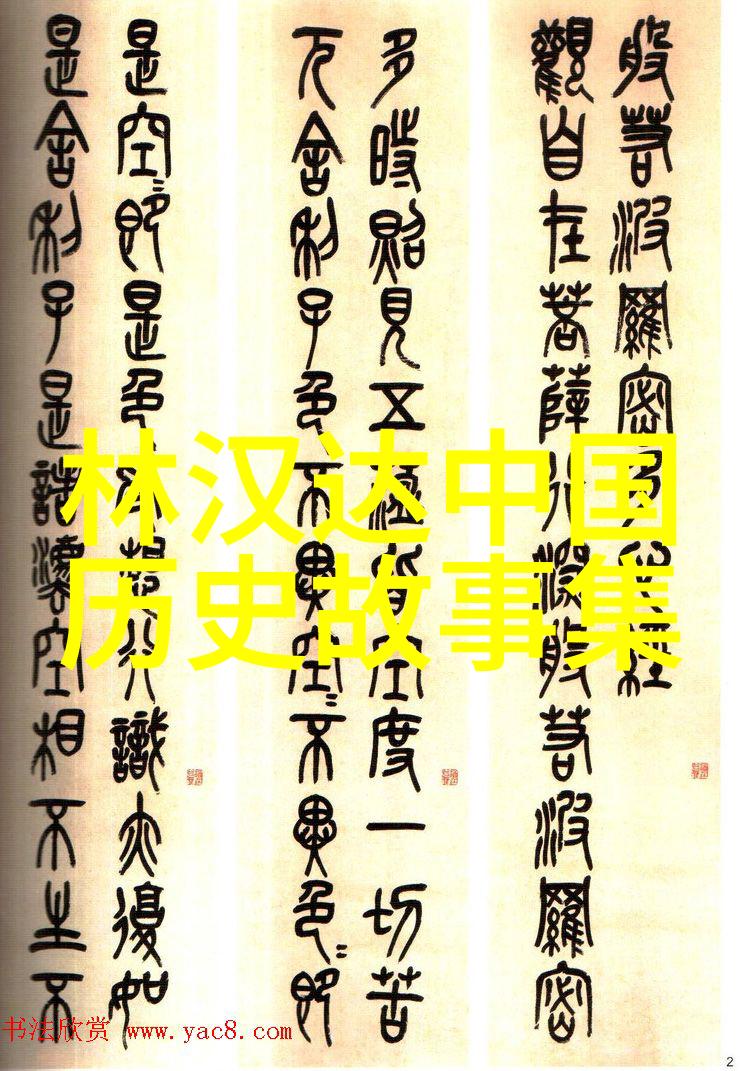 般若波羅密多心經
觀自在菩薩行深般若波羅密
多時照見五蘊皆空度一切苦
厄舍利子色不異空〻不異色〻即
是空〻即是色受想行識亦復如
是舍利子是諸灋空相不生不
林汉达中国
历史故事集
书法欣赏 www.yac8.com
2